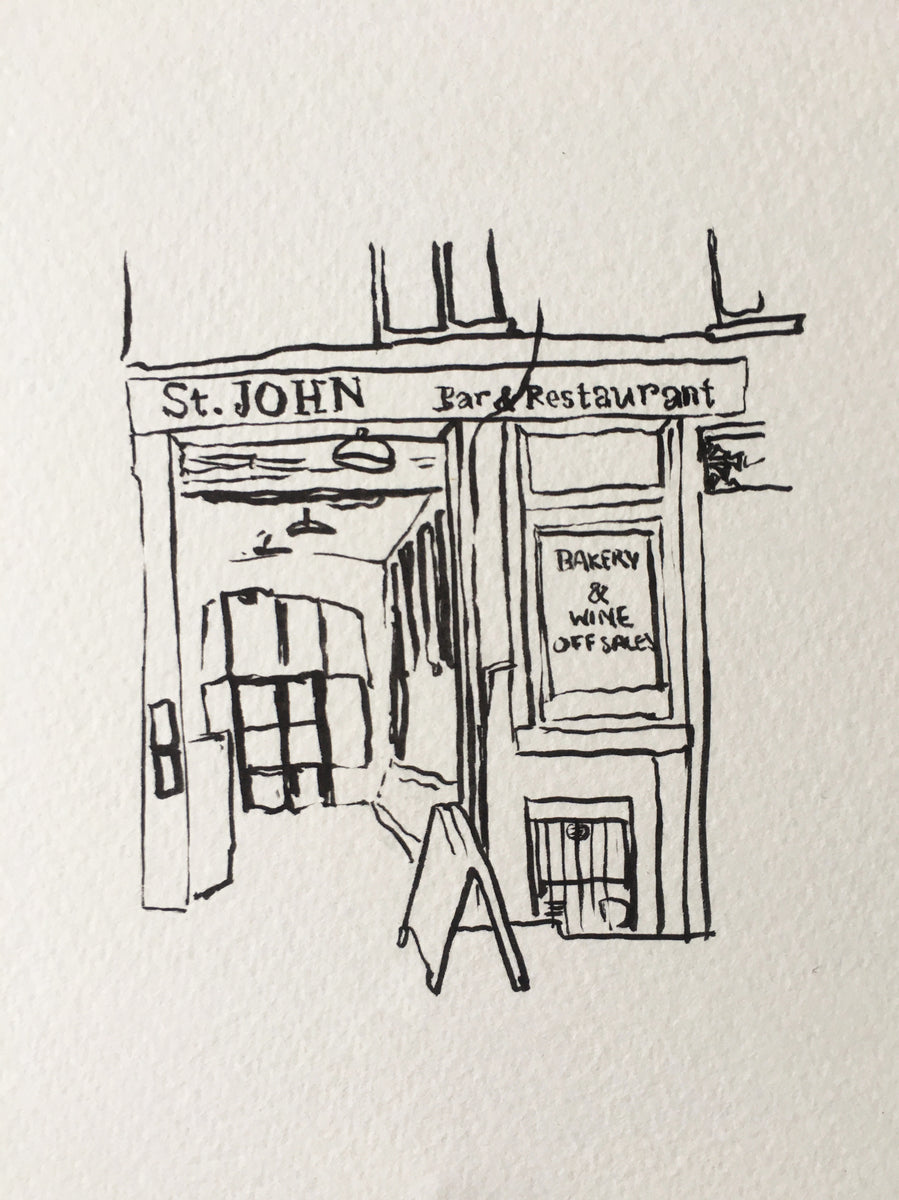 St. JOHN Bar & Restaurant
BAKERY
&
WINE
OFF SALES